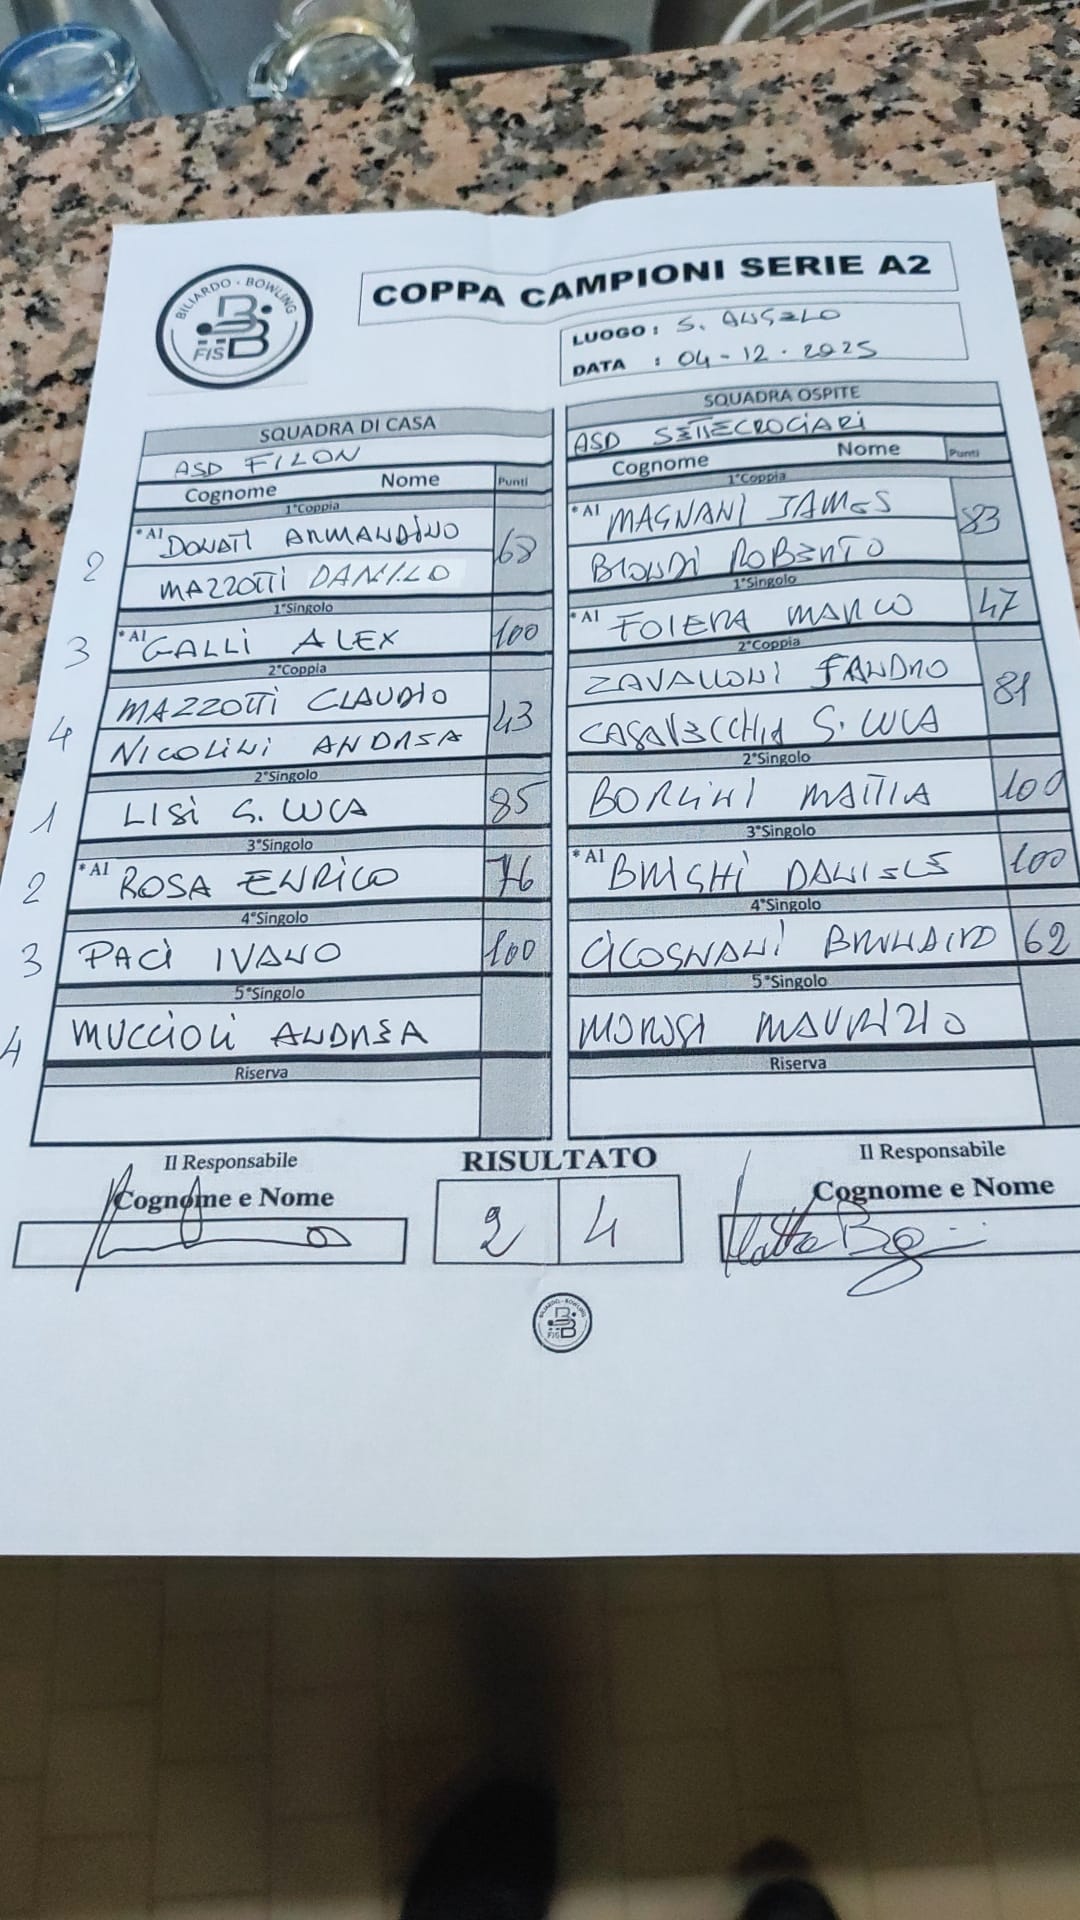 BILIARDO - BOWLING
FISBB
COPPA CAMPIONI SERIE A2
LUOGO : S. ANGELO
DATA : 04-12.2025
SQUADRA DI CASA
SQUADRA OSPITE
ASD FILON
ASD SETTECROCIARI
Cognome Nome Punti
Cognome Nome Punti
1°Coppia
1°Coppia
2 *A1 DONATI ARMANDINO 68
MAZZOTTI DANILO
*A1 MAGNANI JAMES 83
BIONDI ROBERTO
1°Singolo
1°Singolo
3 *A1 GALLI ALEX 100
*A1 FOIERA MARCO 47
2°Coppia
2°Coppia
4 MAZZOTTI CLAUDIO 43
NICOLINI ANDREA
ZAVALLONI SANDRO 81
CASAVECCHIA G. LUCA
2°Singolo
2°Singolo
1 LISI G. LUCA 85
BORGINI MATTIA 100
3°Singolo
3°Singolo
2 *A1 ROSA ENRICO 76
*A1 BRIGHI DANIELE 100
4°Singolo
4°Singolo
3 PACI IVANO 100
CICOGNANI 62
5°Singolo
5°Singolo
4 MUCCIOLI ANDREA
MOROSI MAURIZIO
Riserva
Riserva
Il Responsabile
RISULTATO
Il Responsabile
Cognome e Nome
2 4
Cognome e Nome